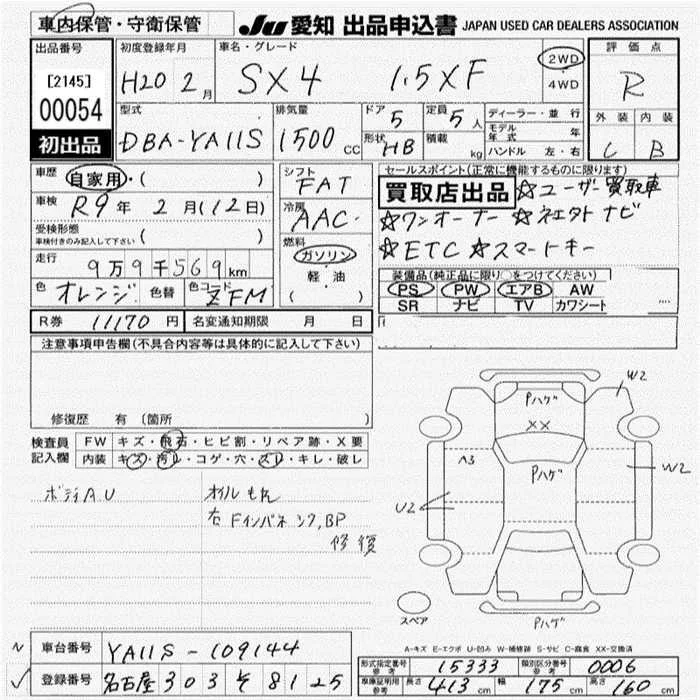 車内保管・守衛保管 JU 愛知 出品申込書 JAPAN USED CAR DEALERS ASSOCIATION
出品番号 初度登録年月 車名・グレード 評価点
[2145] 00054 H20 2月 SX4 1.5XF 2WD・4WD R
初出品 型式 排気量 ドア 5 定員 5人 ディーラー・並行 外装 内装
DBA-YA11S 1500CC 形状 HB 積載 kg モデル年式 年 C B
ハンドル 左・右
車歴 自家用・( ) シフト FAT セールスポイント(正常に機能するものに限ります)
車検 R9年 2月(12日) 冷房 AAC 買取店出品 ☆ユーザー買取車
受検形態 車検付きのみ記入して下さい ( ) 燃料 ☆ワンオーナー ☆ ナビ
走行 9万9千569km ガソリン・軽・油 ( ) ☆ETC ☆スマートキー
色 オレンジ 色替 色コード ZFM 装備品(純正品に限り○をつけてください)
PS PW エアB AW
SR ナビ TV カワシート
R券 11170円 名変通知期限 月 日
注意事項申告欄(不具合内容等は具体的に記入して下さい)
修復歴 有 [箇所 ]
検査員記入欄 FW キズ・飛石・ヒビ割・リペア跡・X要
内装 キズ・汚レ・コゲ・穴・スレ・キレ・破レ
ボディA,U オイルもれ
右Fインパネ ,BP
修復
Pハゲ W2
XX
A3 Pハゲ W2
U2
スペア Pハゲ
A-キズ E-エクボ U-凹み W-補修跡 S-サビ C-腐食 XX-交換済
車台番号 YA11S-109144
登録番号 名古屋 303 そ 8125
形式指定番号 参考 15333 類別区分番号 参考 0006
車庫証明用 参考 長さ 413cm 幅 175cm 高さ 160cm